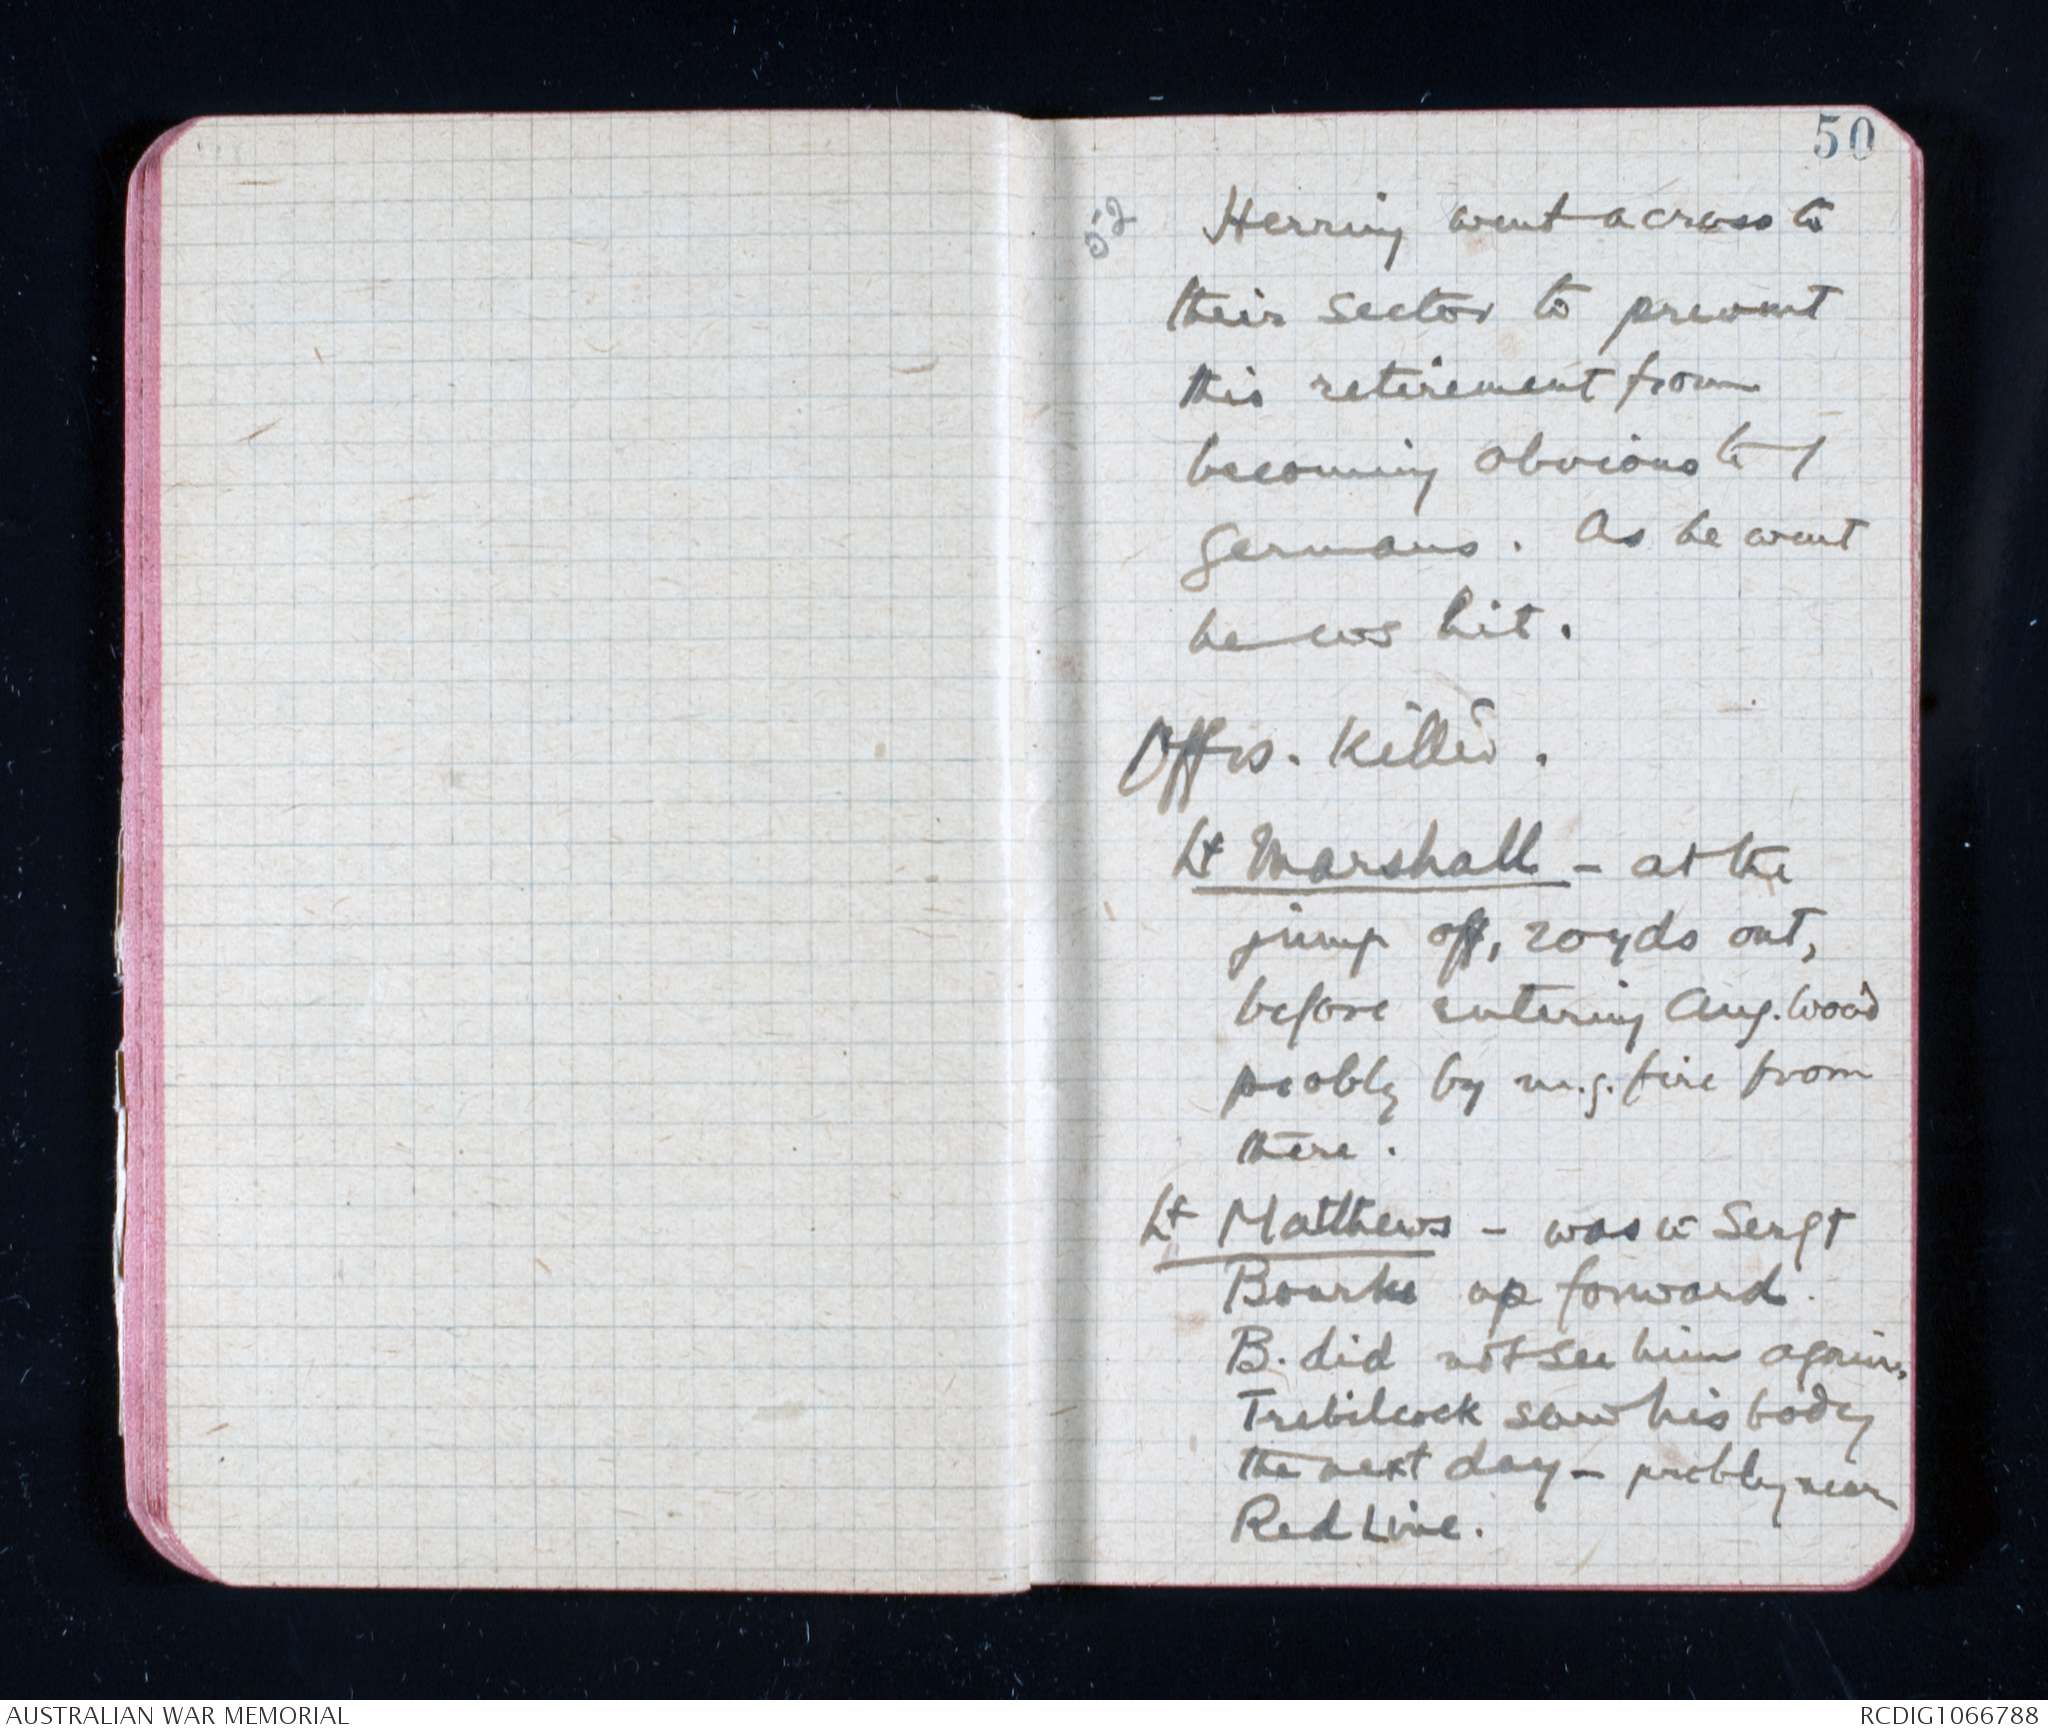 50
Herring went across to
their sector to prevent
this retirement from
becoming obvious to /
Germans. As he went
he ws hit.
Offrs. Killed.
Lt Marshall - at the
jump off, 20 yds out,
before entering Aug. Wood
probbly by m.g. fire from
there.
Lt Matthews - was w Sergt
Bourke up forward.
B. did not see him again.
Trebilcock saw his body
the next day - probbly near
Red Line.
AUSTRALIAN WAR MEMORIAL
RCDIG1066788